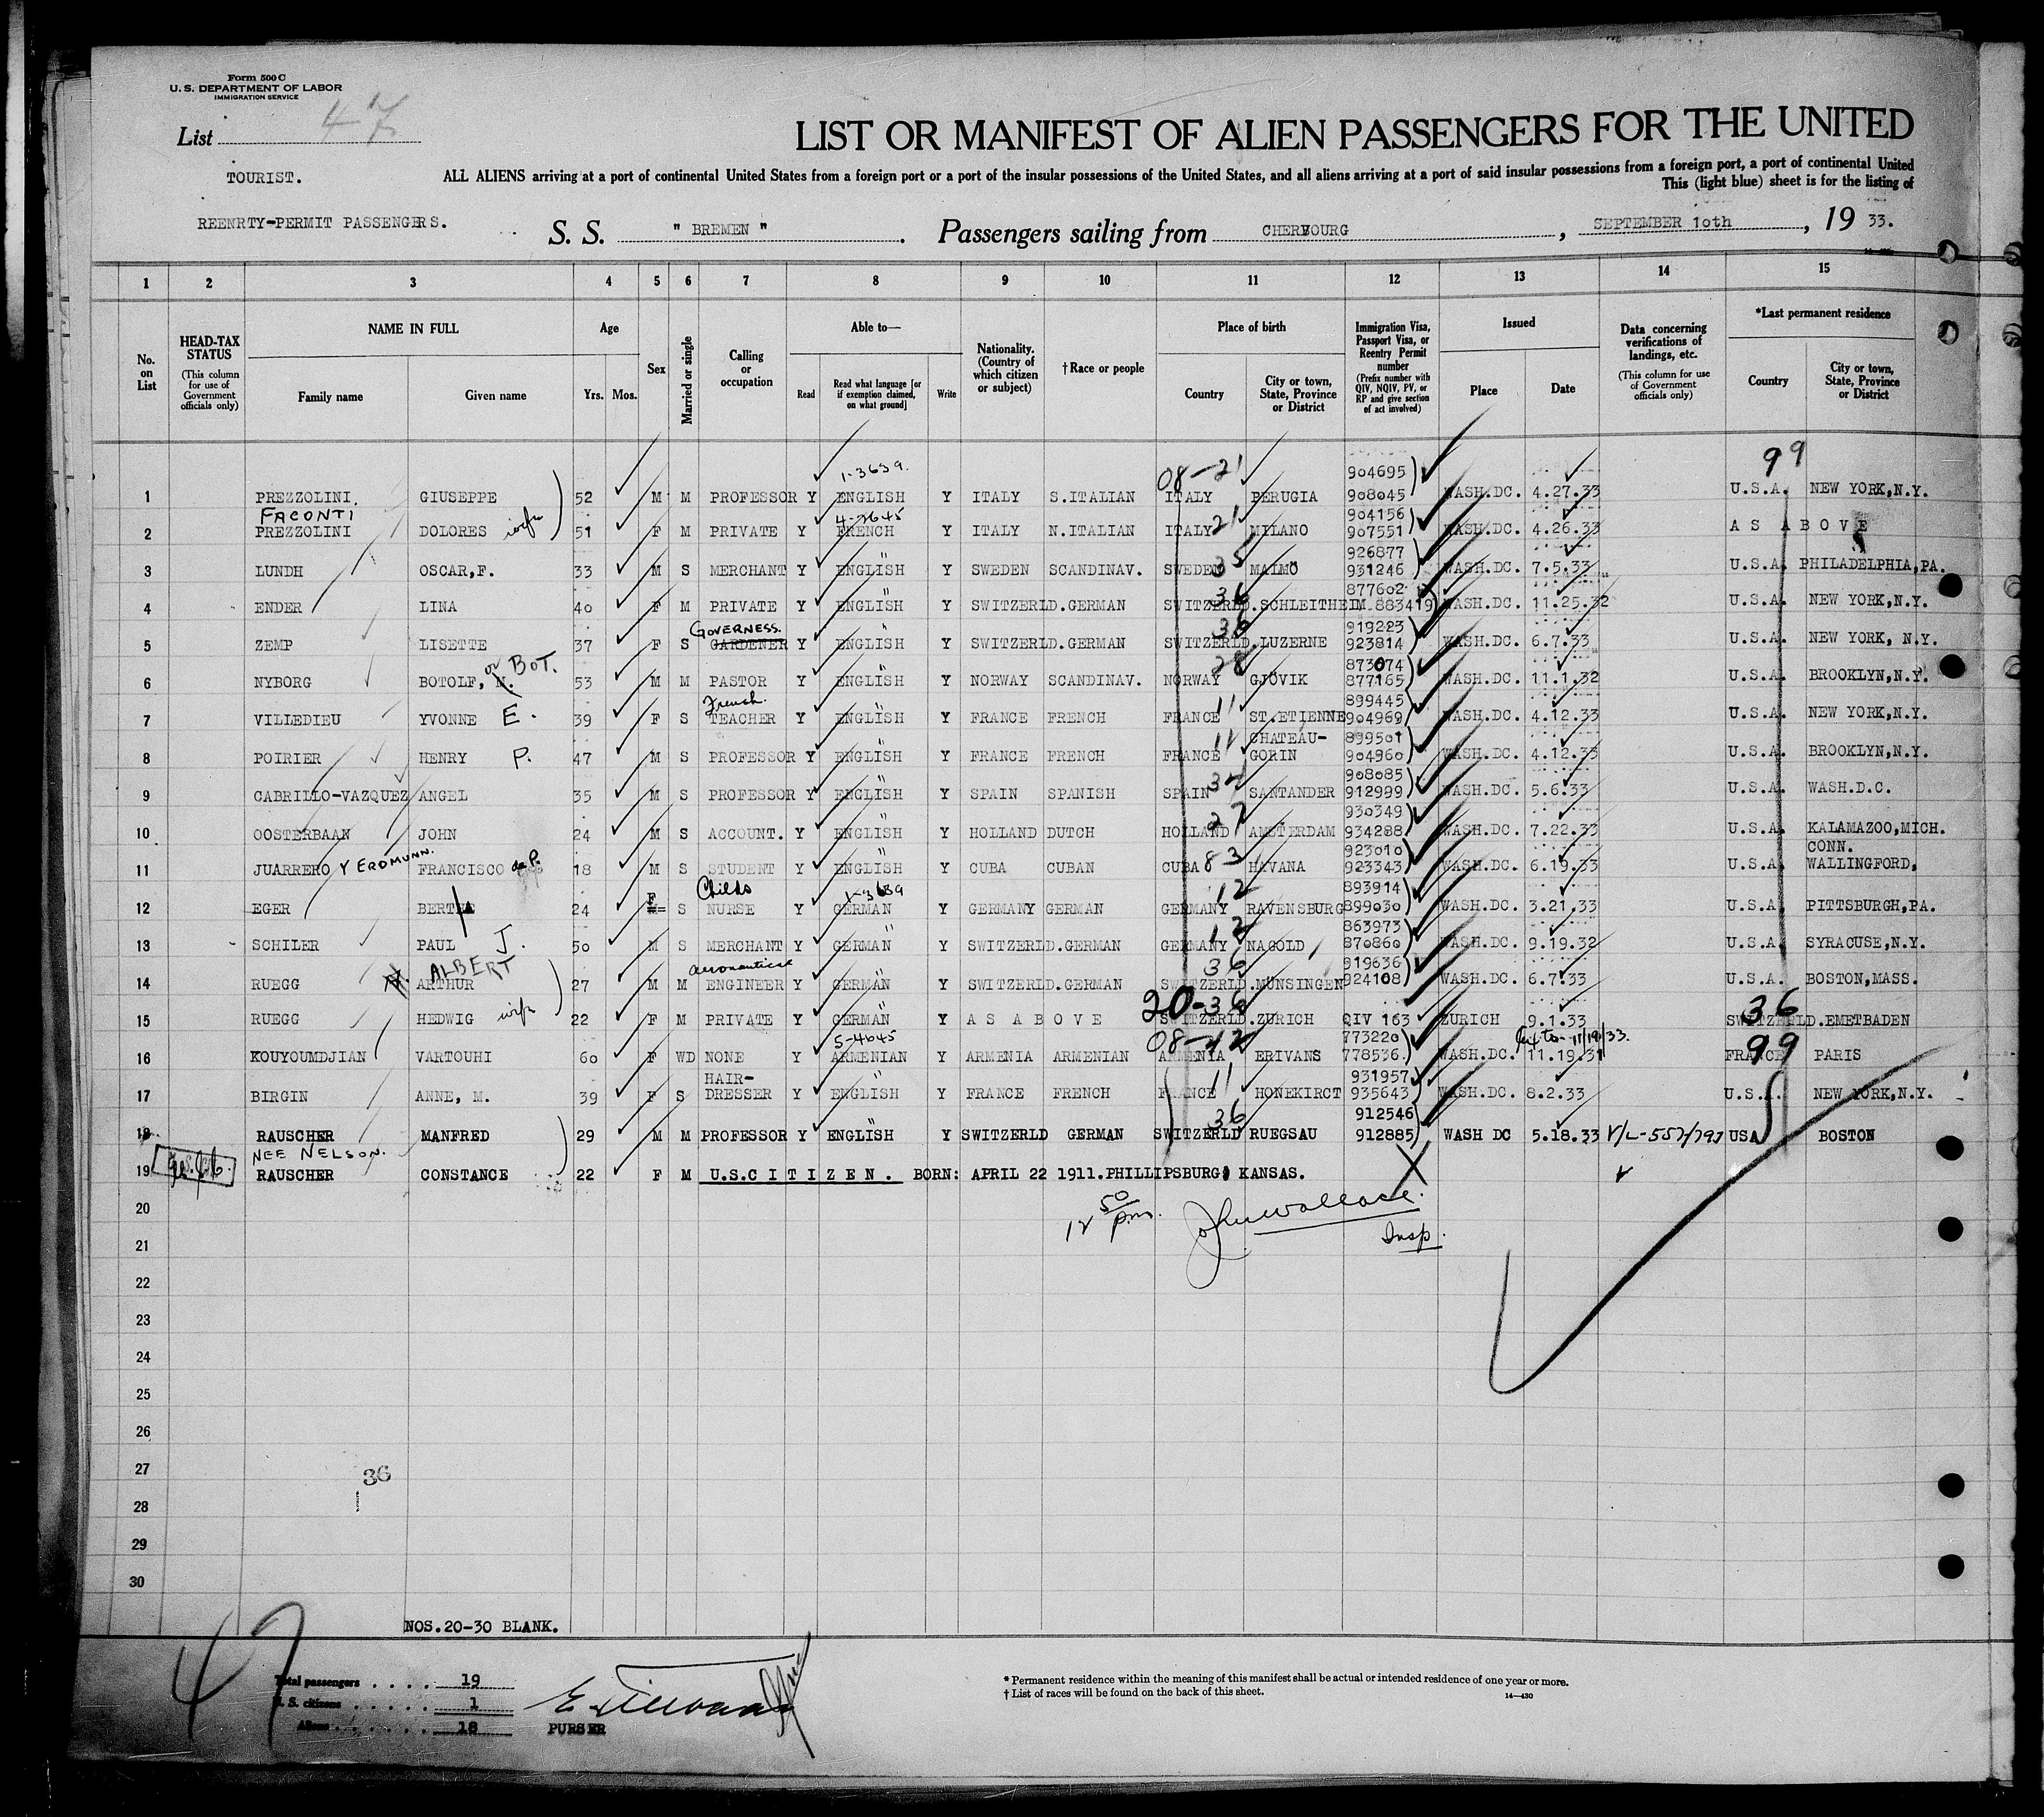 Form 500 C
U. S. DEPARTMENT OF LABOR
IMMIGRATION SERVICE
List 47
LIST OR MANIFEST OF ALIEN PASSENGERS FOR THE UNITED
TOURIST.
ALL ALIENS arriving at a port of continental United States from a foreign port or a port of the insular possessions of the United States, and all aliens arriving at a port of said insular possessions from a foreign port, a port of continental United
This (light blue) sheet is for the listing of
REENRTY-PERMIT PASSENGERS.
S. S. " BREMEN ". Passengers sailing from CHERBOURG, SEPTEMBER 10th, 19 33.
1 2 3 4 5 6 7 8 9 10 11 12 13 14 15
No. on List
HEAD-TAX STATUS (This column for use of Government officials only)
NAME IN FULL Family name Given name
Age Yrs. Mos.
Sex
Married or single
Calling or occupation
Able to— Read Read what language [or if exemption claimed, on what ground] Write
Nationality. (Country of which citizen or subject)
†Race or people
Place of birth Country City or town, State, Province or District
Immigration Visa, Passport Visa, or Reentry Permit number (Prefix number with QIV, NQIV, PV, or RP and give section of act involved)
Issued Place Date
Data concerning verifications of landings, etc. (This column for use of Government officials only)
*Last permanent residence Country City or town, State, Province or District
1-3639. 08-21 904695 99
1 PREZZOLINI. GIUSEPPE 52 M M PROFESSOR Y ENGLISH Y ITALY S.ITALIAN ITALY PERUGIA 908045 WASH.DC. 4.27.33 U.S.A. NEW YORK,N.Y.
FACONTI 4-2645 21 904156
2 PREZZOLINI DOLORES wife 51 F M PRIVATE Y FRENCH Y ITALY N.ITALIAN ITALY MILANO 907551 WASH.DC. 4.26.33 AS ABOVE
" 35 926877
3 LUNDH OSCAR,F. 33 M S MERCHANT Y ENGLISH Y SWEDEN SCANDINAV. SWEDEN MALMÖ 931246 WASH.DC. 7.5.33 U.S.A. PHILADELPHIA,PA.
" 36 877602
4 ENDER LINA 40 F M PRIVATE Y ENGLISH Y SWITZERLD.GERMAN SWITZERLD.SCHLEITHEIM 883419 WASH.DC. 11.25.32 U.S.A. NEW YORK,N.Y.
GOVERNESS. " 36 919223
5 ZEMP LISETTE 37 F S GARDENER Y ENGLISH Y SWITZERLD.GERMAN SWITZERLD.LUZERNE 923814 WASH.DC. 6.7.33 U.S.A. NEW YORK, N.Y.
or BOT. " 28 873074
6 NYBORG BOTOLF, M. 53 M M PASTOR Y ENGLISH Y NORWAY SCANDINAV. NORWAY GJÖVIK 877165 WASH.DC. 11.1.32 U.S.A. BROOKLYN,N.Y.
French. " 11 899445
7 VILLEDIEU YVONNE E. 39 F S TEACHER Y ENGLISH Y FRANCE FRENCH FRANCE ST.ETIENNE 904969 WASH.DC. 4.12.33 U.S.A. NEW YORK,N.Y.
" 11 CHATEAU- 899501
8 POIRIER HENRY P. 47 M S PROFESSOR Y ENGLISH Y FRANCE FRENCH FRANCE GORIN 904960 WASH.DC. 4.12.33 U.S.A. BROOKLYN,N.Y.
" 34 908085
9 CABRILLO-VAZQUEZ ANGEL 35 M S PROFESSOR Y ENGLISH Y SPAIN SPANISH SPAIN SANTANDER 912999 WASH.DC. 5.6.33 U.S.A. WASH.D.C.
" 27 930349
10 OOSTERBAAN JOHN 24 M S ACCOUNT. Y ENGLISH Y HOLLAND DUTCH HOLLAND AMSTERDAM 934288 WASH.DC. 7.22.33 U.S.A. KALAMAZOO,MICH.
" 83 923010 CONN.
11 JUARRERO Y ERDMUNN. FRANCISCO de P. 18 M S STUDENT Y ENGLISH Y CUBA CUBAN CUBA HAVANA 923343 WASH.DC. 6.19.33 U.S.A. WALLINGFORD,
F Childs 1-3639 12 893914
12 EGER BERTA 24 S NURSE Y GERMAN Y GERMANY GERMAN GERMANY RAVENSBURG 899030 WASH.DC. 3.21.33 U.S.A. PITTSBURGH,PA.
" 12 863973
13 SCHILER PAUL J. 50 M S MERCHANT Y GERMAN Y SWITZERLD.GERMAN GERMANY NAGOLD 870860 WASH.DC. 9.19.32 U.S.A. SYRACUSE,N.Y.
ALBERT aeronautical " 36 919636
14 RUEGG ARTHUR 27 M M ENGINEER Y GERMAN Y SWITZERLD.GERMAN SWITZERLD.MÜNSINGEN 924108 WASH.DC. 6.7.33 U.S.A. BOSTON,MASS.
" 20-36 36
15 RUEGG HEDWIG wife 22 F M PRIVATE Y GERMAN Y AS ABOVE SWITZERLD.ZURICH QIV 163 ZURICH 9.1.33 SWITZERLD.EMETBADEN
5-4645 08-42 773220 Ext to 11/19/33. 99
16 KOUYOUMDJIAN VARTOUHI 60 F WD NONE Y ARMENIAN Y ARMENIA ARMENIAN ARMENIA ERIVANS 778536. WASH.DC. 11.19.31 FRANCE PARIS
HAIR- " 11 931957
17 BIRGIN ANNE, M. 39 F S DRESSER Y ENGLISH Y FRANCE FRENCH FRANCE HONEKIRCT 935643 WASH.DC. 8.2.33 U.S.A. NEW YORK,N.Y.
" 36 912546
18 RAUSCHER MANFRED 29 M M PROFESSOR Y ENGLISH Y SWITZERLD GERMAN SWITZERLD RUEGSAU 912885 WASH DC 5.18.33 V/L-557/793 USA BOSTON
NEE NELSON.
19 RAUSCHER CONSTANCE 22 F M U.S.CITIZEN. BORN: APRIL 22 1911.PHILLIPSBURG, KANSAS.
20 12 50 p.m. John Wallace.
21 Insp.
22
23
24
25
26
27 36
28
29
30
NOS.20-30 BLANK.
47
Total passengers . . . . 19
U. S. citizens . . . . . 1
Aliens . . . . . . 18
PURSER
* Permanent residence within the meaning of this manifest shall be actual or intended residence of one year or more.
† List of races will be found on the back of this sheet.
14—430